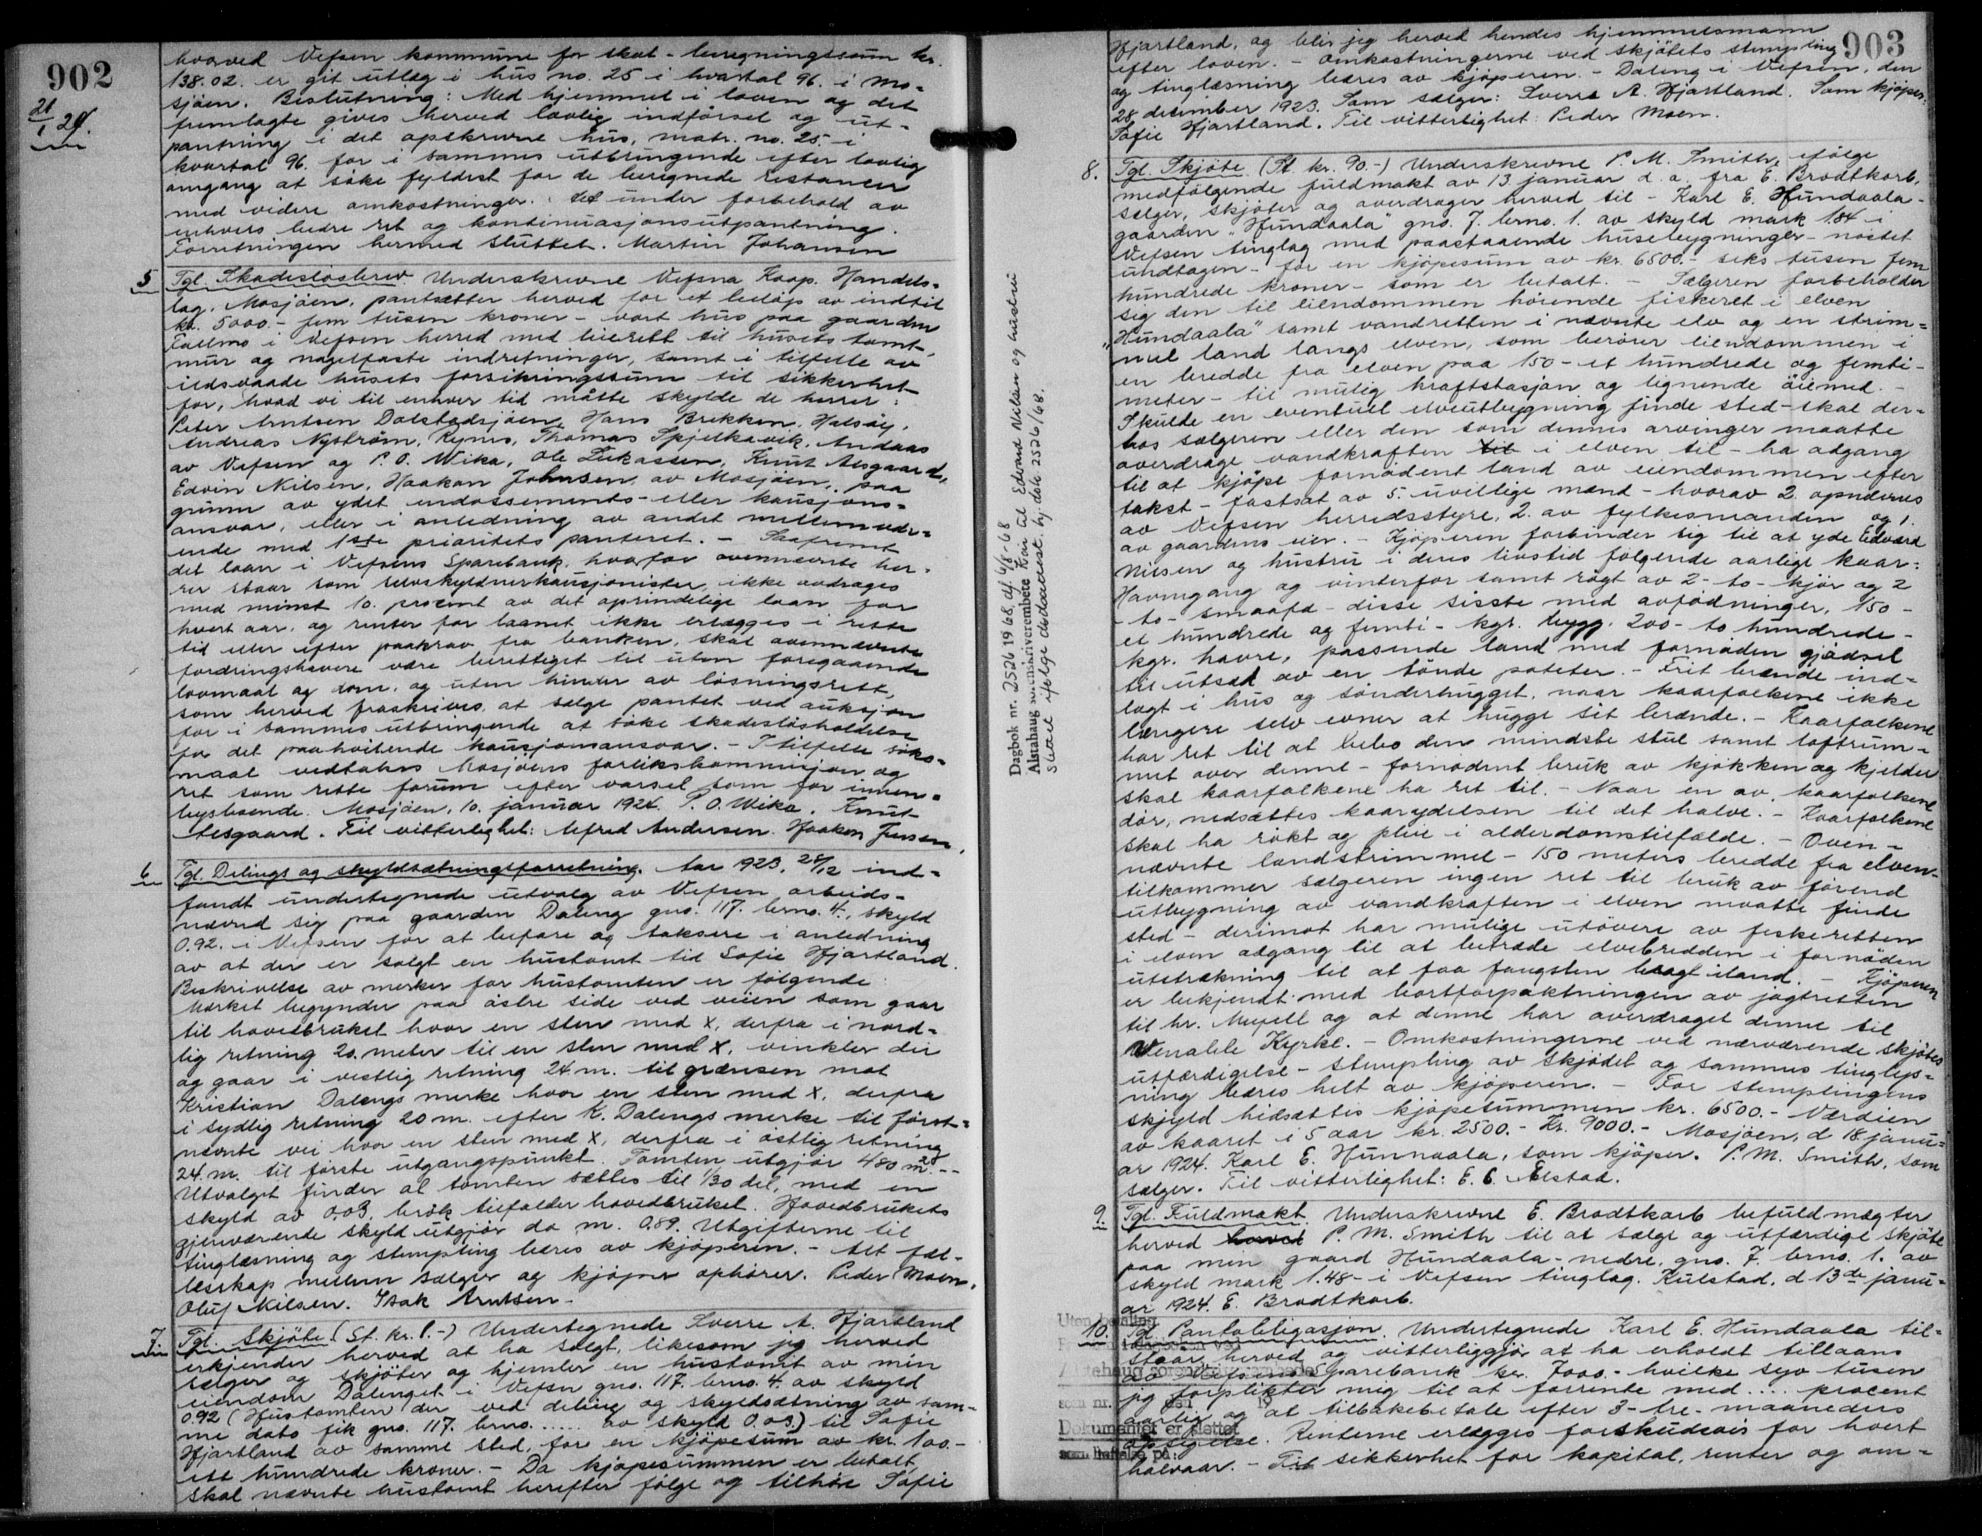 902
21/1 24.
hvorved Vefsen kommune for skat-beregningssum kr.
138.02. er git utlæg i hus no. 25 i kvartal 96. i Mo-
sjøen. Beslutning: Med hjemmel i loven og det
fremlagte gives herved lovlig indførsel og ut-
pantning i det opskrevne hus, matr. no. 25. i
kvartal 96. for i sammes utbringende efter lovlig
omgang at søke fyldest for de beregnede restancer
med videre omkostninger. Alt under forbehold av
enhvers bedre ret og kontinuasjonsutpantning.
Forretningen hermed sluttet. Martin Johansen
5 Tgl. Skadesløsbrev Underskrevne Vefsna Koop. Handels-
lag, Mosjøen, pantsætter herved for et beløp av indtil
kr. 5000.- fem tusen kroner - vort hus paa gaarden
i Vefsen herred med leierett til husets tomt,
mur og nagelfaste indretninger, samt i tilfelle av
ildsvaade husets forsikringssum til sikkerhet
for, hvad vi til enhver tid måtte skylde de herrer:
Peter Arntsen Dolstadsjøen, Hans Brekken, Halsøy,
Andreas Nyström, Kynes, Thomas Spjelkavik, Andaas
av Vefsen og P. O. Wika, Ole Lukassen, Knut Aesgaard,
Edvin Nilsen, Haakon Johnsen, av Mosjøen, paa
grunn av ydet endossements- eller kausjons-
ansvar, eller i anledning av andet mellemvær-
ende med 1ste prioritets panteret. - Saafremt
det laan i Vefsens Sparebank, hvorfor ovennevnte her-
rer staar som selvskyldnerkausjonister, ikke avdrages
med minst 10. procent av det oprindelige laan for
hvert aar, og renter for laanet ikke erlægges i rette
tid eller efter paakrav fra banken, skal ovennevnte
fordringshavere være berettiget til uten foregaaende
lovmaal og dom, og uten hinder av løsningsrett,
som herved fraskrives, at sælge pantet ved auksjon
for i sammes utbringende at søke skadesløsholdelse
for det paahvilende kausjonsansvar. - I tilfelle søks-
maal vedtakes Mosjøens forlikskommisjon og
ret som rette forum efter varsel som for innen-
bysboende. Mosjøen, 10. januar 1924. P. O. Wika. Knut
Aesgaard. Til vitterlighet: Alfred Andersen. Haakon Jensen.
6. Tgl. Delings og skyldsætningsforretning. Aar 1923, 28/12 ind-
fandt undertegnede utvalg av Vefsen arbeids-
nævnd sig paa gaarden Daleng gno. 117. brno. 4., skyld
0.92. i Vefsen for at befare og taksere i anledning
av at der er solgt en hustomt til Sofie Hjartland.
Beskrivelse av merker for hustomten er følgende
Merket begynder paa østre side ved veiien som gaar
til hovedbruket hvor en sten med X, derfra i nord-
lig retning 20. meter til en sten med X, vinkler der
og gaar i vestlig retning 24 m. til grænsen mot
Kristian Dalengs merke hvor en sten med X, derfra
i sydlig retning 20 m. efter K. Dalengs merke til først-
nevnte vei hvor en sten med X, derfra i østlig retning
24. m. til første utgangspunkt. Tomten utgjør 480 m².-
Utvalget finder at tomten sættes til 1/30 del, med en
skyld av 0.03. brøk tilfalder hovedbruket. Hovedbrukets
gjenværende skyld utgjør da m. 0.89. Utgifterne til
tinglæsning og stempling bæres av kjøperen. - Alt fæl-
lesskap mellem sælger og kjøper ophører. Peder Moen.
Oluf Nilsen. Isak Arntsen.
7. Tgl. Skjøte (St. kr. 1.-) Undertegnede Sverre A. Hjartland
erkjender herved at ha solgt, likesom jeg herved
sælger og skjøter og hjemler en hustomt av min
eiendom Dalenget i Vefsn gno. 117. brno. 4. av skyld
0.92 (Hustomten der ved deling og skyldsætning av sam-
me dato fik gno. 117. brno. ..... av skyld 0.03) til Sofie
Hjartland av samme sted, for en kjøpesum av kr. 100.-
ett hundrede kroner. - Da kjøpesummen er betalt
skal nævnte hustomt herefter følge og tilhøre Sofie
Dagbok nr. 2526 1968, af. 4/6-68
Alstahaug sorenskriverembete Kår til Edvard Nilsen og hustru
slettet ifølge dødsattest, hj. dok. 2526/68.
903
Hjartland, og blir jeg herved hendes hjemmelsmann
efter loven. - Omkostningerne ved skjøtets stempling
og tinglæsning bæres av kjøperen. - Daleng i Vefsen, den
28 desember 1923. Som sælger: Sverre A. Hjartland. Som kjøper:
Sofie Hjartland. Til vitterlighet: Peder Moen.
8. Tgl. Skjøte (St. kr. 90.-) Underskrevne P. M. Smith, ifølge
medfølgende fuldmakt av 13 januar d. a. fra E. Brodtkorb,
sælger, skjøter og overdrager herved til - Karl E. Hundaala -
gaarden "Hundaala" gno. 7. brno. 1. av skyld mark 184 i
Vefsen tinglag med paastaaende husebygninger - nostet
undtagen - for en kjøpesum av kr. 6500.- seks tusen fem
hundrede kroner - som er betalt. - Sælgeren forbeholder
sig den til eiendommen hørende fiskeret i elven
"Hundaala" samt vandretten i nævnte elv og en strim-
mel land langs elven, som berører eiendommen i
en bredde fra elven paa 150 - et hundrede og femti -
meter - til mulig kraftstasjon og lignende øiemed. -
Skulde en eventuel elveutbygning finde sted - skal der-
hos sælgeren eller den som dennes arvinger maatte
overdrage vandkraften til i elven til - ha adgang
til at kjøpe fornødent land av eiendommen efter
takst - fastsat av 5. uvillige mænd - hvorav 2 opnævnes
av Vefsen herredsstyre, 2. av fylkesmanden og 1.
av gaardens eier. - Kjøperen forbinder sig til at yde Edvard
Nilsen og hustru i deres livstid følgende aarlige kaar:
Havngang og vinterfor samt røgt av 2 - to - kjør og 2
- to - smaafæ - disse sisste med avfødninger, 150 -
et hundrede og femti - kgr. bygg. 200 - to hundrede -
kgr. havre, passende land med fornøden gjødsel
til utsæd av en tønde poteter. - Frit brænde ind-
lagt i hus og sønderhugget, naar kaarfolkene ikke
længere selv evner at hugge sit brænde. - Kaarfolkene
har ret til at bebo den mindste stue samt loftrum-
met over denne - fornødent bruk av kjøkken og kjelder
skal kaarfolkene ha ret til. - Naar en av kaarfolkene
dør, nedsættes kaarydelsen til det halve. - Kaarfolkene
skal ha røkt og pleie i alderdomstilfælde. - Oven-
nævnte landstrimmel - 150 meters bredde fra elven -
tilkommer sælgeren ingen ret til bruk av førend
utbygning av vandkraften i elven maatte finde
sted - derimot har mulige utøvere av fiskeretten
i elven adgang til at betræde elvebredden i fornøden
utstrækning til at faa fangsten bragt iland. - Kjøperen
er bekjendt med bortforpaktningen av jagtretten
til hr. og at denne har overdraget denne til
Kyrke. - Omkostningerne ved nærværende skjøtes
utfærdigelse - stempling av skjødet og sammes tinglys-
ning bæres helt av kjøperen. - For stemplingens
skyld hidsættes kjøpesummen kr. 6500.- Værdien
av kaaret i 5 aar kr. 2500.- Kr. 9000.- Mosjøen, d 18 janu-
ar 1924. Karl E. Hunnaala, som kjøper. P. M. Smith, som
sælger. Til vitterlighet: E. C. Alstad.
9. Tgl. Fuldmakt. Underskrevne E. Brodtkorb befuldmægter
herved herved P. M. Smith til at sælge og utfærdige skjøte
paa min gaard Hundaala - nedre, gno. 7. brno. 1. av
skyld mark 1.48 - i Vefsen tinglag. Kulstad, d 13de janu-
ar 1924. E. Brodtkorb.
10. Tgl. Pantobligasjon. Undertegnede Karl E. Hundaala til-
staar herved og vitterliggjør at ha erholdt tillaans
av Vefsens Sparebank kr. 7000.- hvilke syv tusen
jeg forplikter mig til at forrente med .... procent
aarlig og at tilbakebetale efter 3 - tre - maaneders
opsigelse. Renterne erlægges forskudsvis for hvert
halvaar. - Til sikkerhet for kapital, renter og om-
Uten betaling
Alstahaug sorenskriverembete
som nr. den 19
Dokumentet er slettet
som heftelse på: